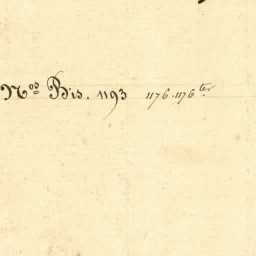 Nos Bis. 1193 1176-1176 ter